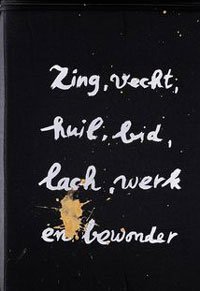 Zing, vecht,
huil, bid,
lach, werk
en bewonder